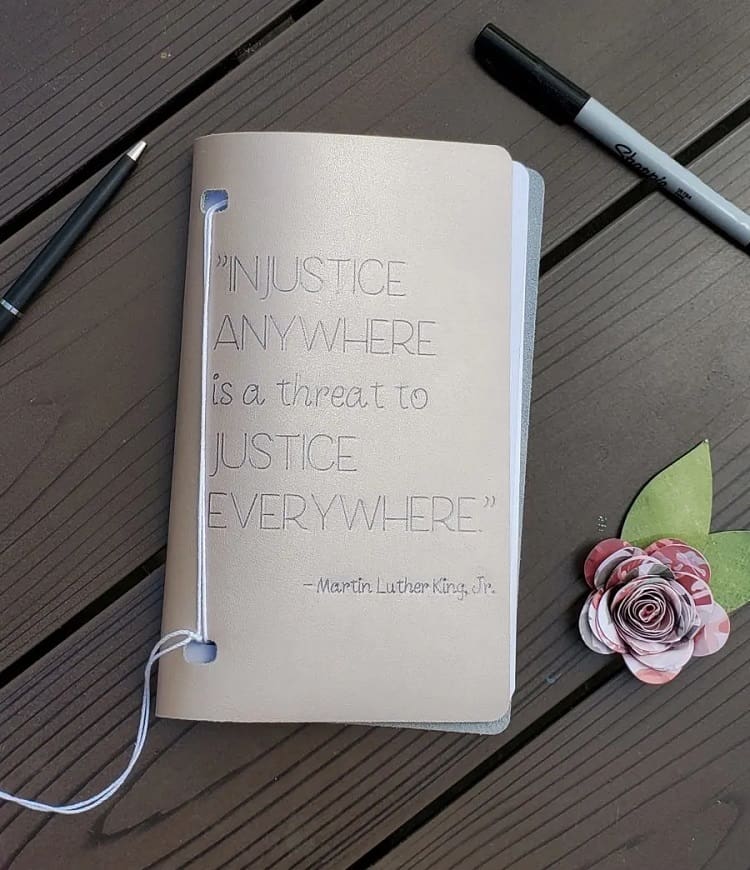 ”INJUSTICE
ANYWHERE
is a threat to
JUSTICE
EVERYWHERE.”
- Martin Luther King, Jr.
Sharpie